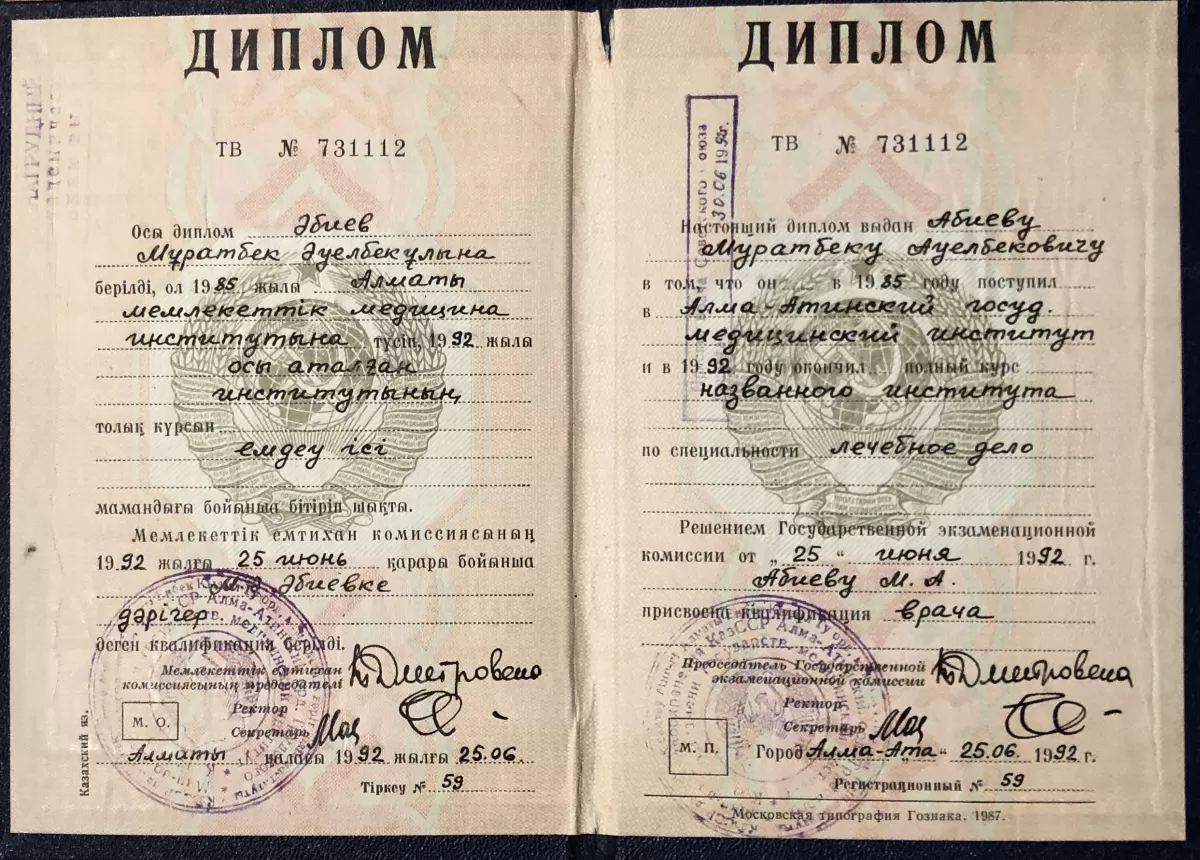 ДИПЛОМ
ТВ № 731112
Осы диплом Әбиев
Мұратбек Әуелбекұлына
берілді, ол 1985 жылы Алматы
мемлекеттік медицина
институтына түсіп, 1992 жылы
осы аталған
институтының
толық курсын
емдеу ісі
мамандығы бойынша бітіріп шықты.
Мемлекеттік емтихан комиссиясының
1992 жылғы 25 июнь қарары бойынша
М.Ә. Әбиевке
дәрігер
деген квалификация берілді.
Мемлекеттік емтихан
комиссиясының председателі
Ректор
Секретарь
М. О.
Алматы қаласы 1992 жылғы 25.06.
Тіркеу № 59
Казахский яз.
ДИПЛОМ
ТВ № 731112
30.06 1992г.
Настоящий диплом выдан Абиеву
Муратбеку Ауелбековичу
в том, что он в 1985 году поступил
в Алма-Атинский госуд.
медицинский институт
и в 1992 году окончил полный курс
названного института
по специальности лечебное дело
Решением Государственной экзаменационной
комиссии от „25" июня 1992 г.
Абиеву М. А.
присвоена квалификация врача
Председатель Государственной
экзаменационной комиссии
Ректор
Секретарь
М. П.
Город Алма-Ата „ 25.06. 1992 г.
Регистрационный № 59
Московская типография Гознака. 1987.